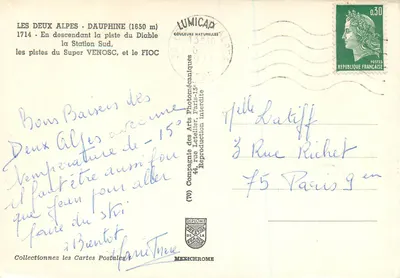 LES DEUX ALPES - DAUPHINE (1650 m)
1714 - En descendant la piste du Diable
la Station Sud,
les pistes du Super VENOSC, et le FIOC
LUMICAP
COULEURS NATURELLES
0,30
POSTES
REPUBLIQUE FRANCAISE
Bons Baisers des
Deux Alpes avec une
température de -15°
il faut être aussi fou
que Jean pour aller
faire du ski
à Bientôt
(70) Compagnie des Arts Photomécaniques
44, rue Letellier, Paris-15e
Reproduction interdite
Melle Latiff
3 Rue Richet
75 Paris 9em
Collectionnez les Cartes Postales
MEXICHROME